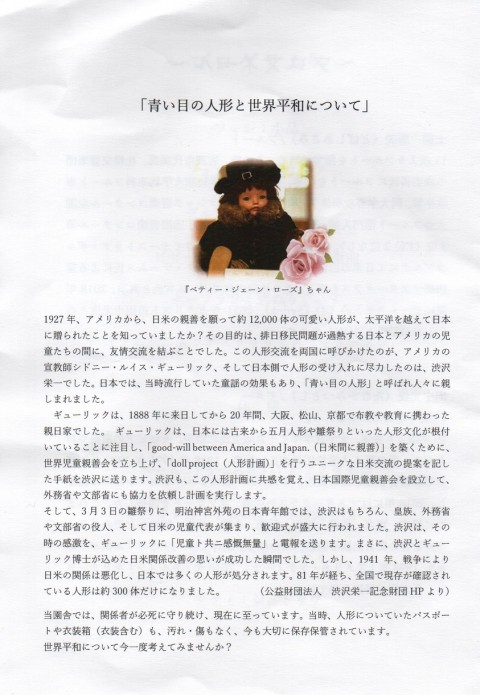 「青い目の人形と世界平和について」
『ベティー・ジェーン・ローズ』ちゃん
1927年、アメリカから、日米の親善を願って約12,000体の可愛い人形が、太平洋を越えて日本
に贈られたことを知っていましたか？その目的は、排日移民問題が過熱する日本とアメリカの児
童たちの間に、友情交流を結ぶことでした。この人形交流を両国に呼びかけたのが、アメリカの
宣教師シドニー・ルイス・ギューリック、そして日本側で人形の受け入れに尽力したのは、渋沢
栄一でした。日本では、当時流行していた童謡の効果もあり、「青い目の人形」と呼ばれ人々に親
しまれました。
ギューリックは、1888年に来日してから20年間、大阪、松山、京都で布教や教育に携わった
親日家でした。 ギューリックは、日本には古来から五月人形や雛祭りといった人形文化が根付
いていることに注目し、「good-will between America and Japan.（日米間に親善）」を築くために、
世界児童親善会を立ち上げ、「doll project（人形計画）」を行うユニークな日米交流の提案を記し
た手紙を渋沢に送ります。渋沢も、この人形計画に共感を覚え、日本国際児童親善会を設立して、
外務省や文部省にも協力を依頼し計画を実行します。
そして、3月3日の雛祭りに、明治神宮外苑の日本青年館では、渋沢はもちろん、皇族、外務省
や文部省の役人、そして日米の児童代表が集まり、歓迎式が盛大に行われました。渋沢は、その
時の感激を、ギューリックに「児童ト共ニ感慨無量」と電報を送ります。まさに、渋沢とギュー
リック博士が込めた日米関係改善の思いが成功した瞬間でした。しかし、1941年、戦争により
日米の関係は悪化し、日本では多くの人形が処分されます。81年が経ち、全国で現存が確認され
ている人形は約300体だけになりました。 （公益財団法人 渋沢栄一記念財団HPより）
当園舎では、関係者が必死に守り続け、現在に至っています。当時、人形についていたパスポー
トや衣装箱（衣装含む）も、汚れ・傷もなく、今も大切に保存保管されています。
世界平和について今一度考えてみませんか？